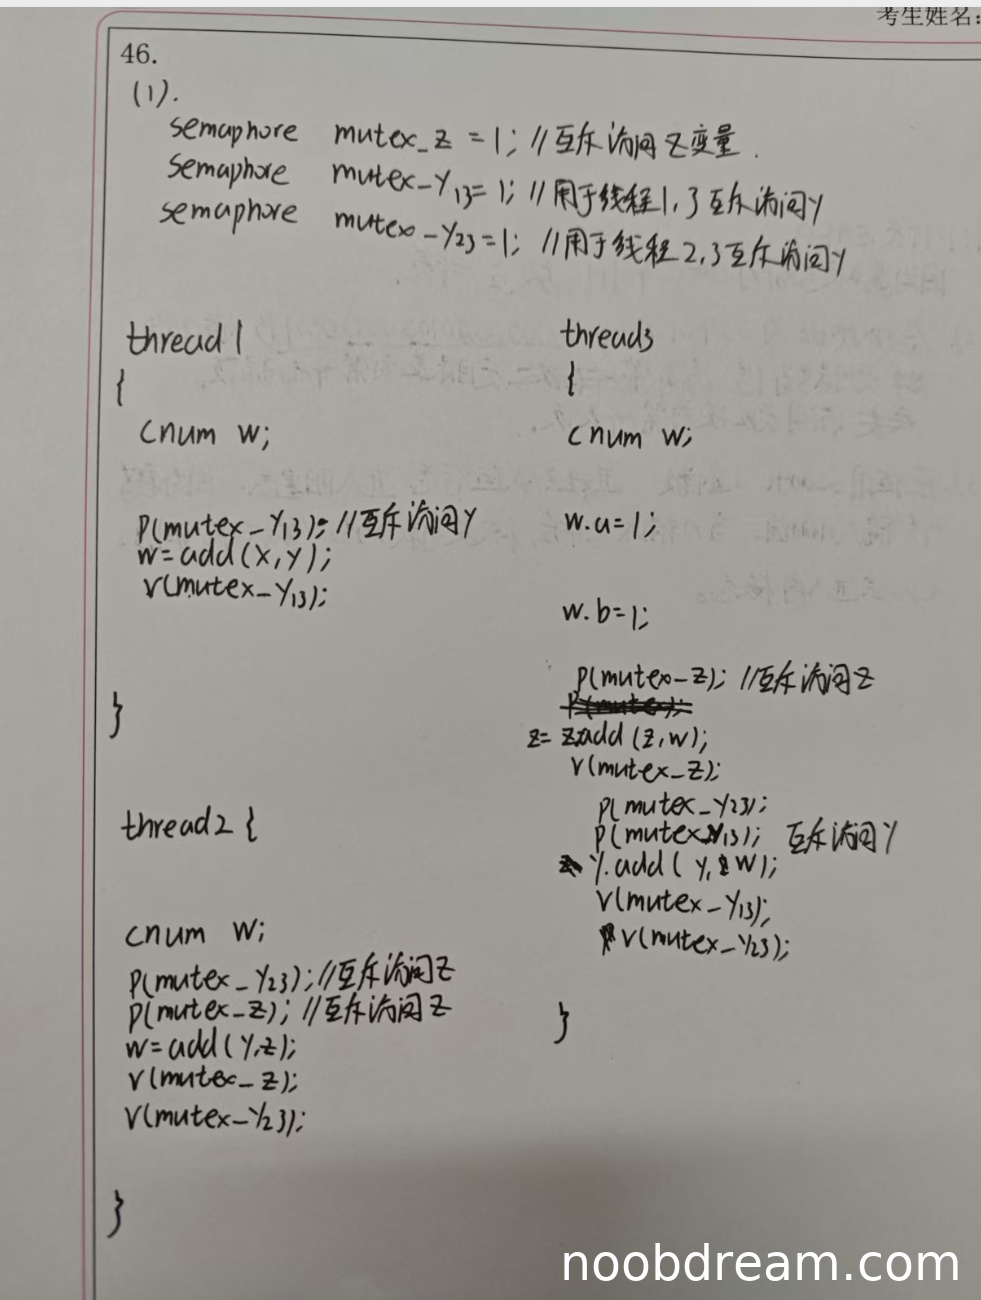 考生姓名:
46.
(1).
semaphore mutex_z = 1; //互斥访问z变量.
semaphore mutex-y13=1; //用于线程1,3互斥访问y
semaphore mutex-y23=1; //用于线程2,3互斥访问y
thread1
{
cnum w;
p(mutex-y13); //互斥访问y
w=add(x,y);
v(mutex-y13);
}
thread2 {
cnum w;
p(mutex-y23); //互斥访问z
p(mutex-z); //互斥访问z
w=add(y,z);
v(mutex-z);
v(mutex-y23);
}
thread3
{
cnum w;
w.a=1;
w.b=1;
p(mutex-z); //互斥访问z
p(mutex);
z= z.add(z,w);
v(mutex-z);
p(mutex-y23);
p(mutex y13); 互斥访问y
y.add(y, w);
v(mutex-y13);
v(mutex-y23);
}
noobdream.com